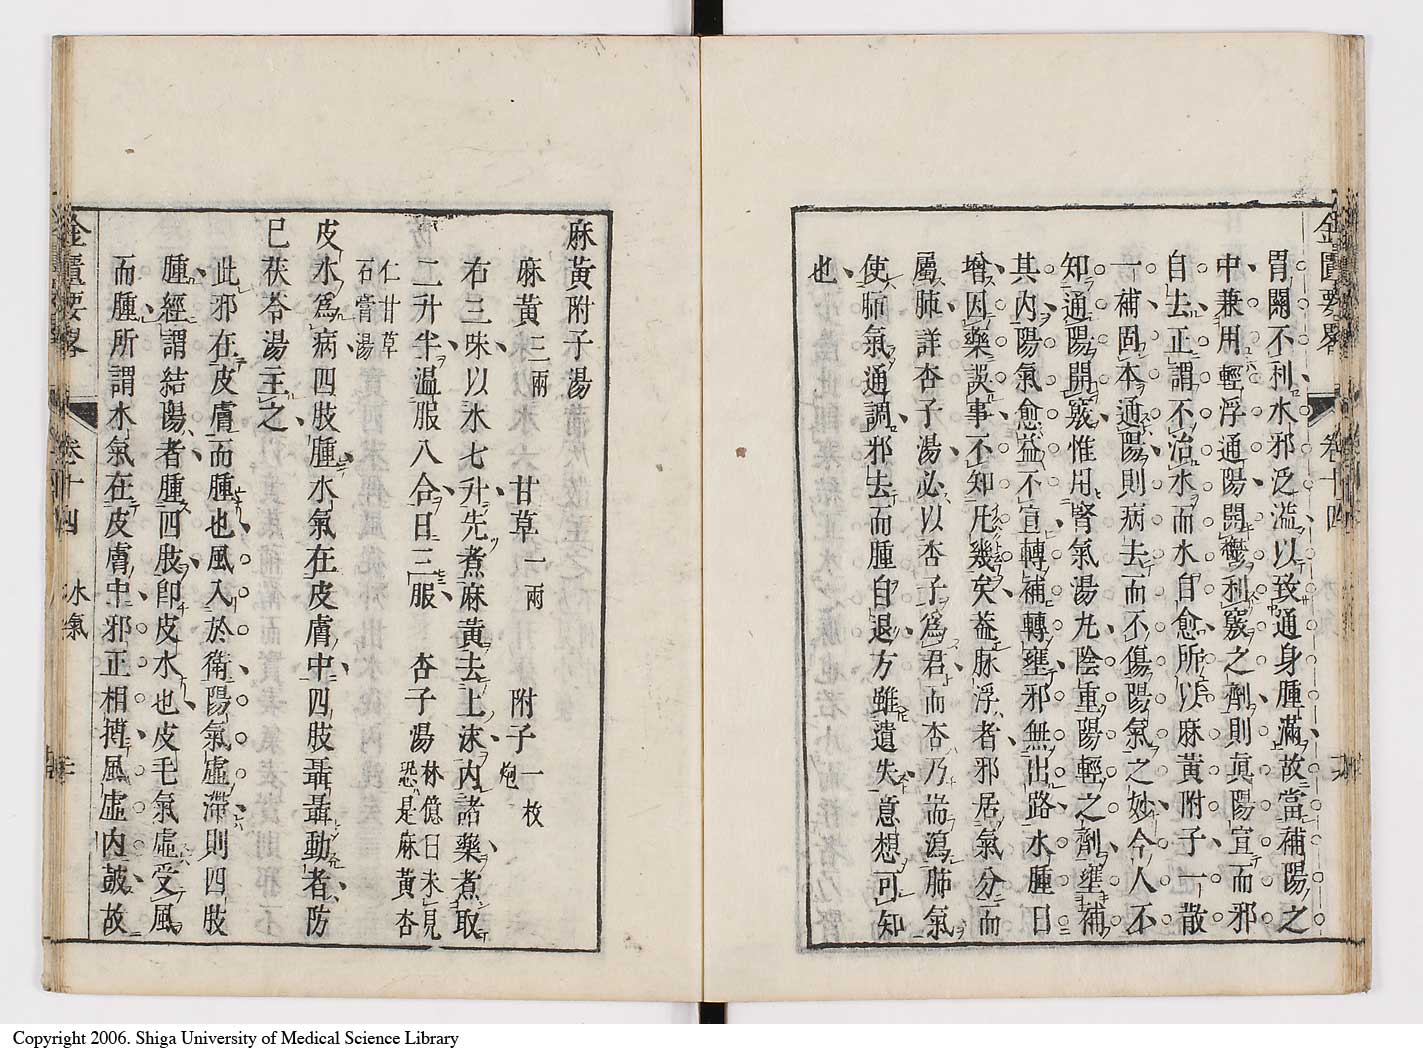 金匱要畧　卷十四
胃關不利水邪泛溢以致通身腫滿故當補陽之
中兼用輕浮通陽開鬱利竅之劑則眞陽宣而邪
自去正謂不治水而水自愈所以麻黄附子一散
一補固本通陽則病去而不傷陽氣之妙今人不
知通陽開竅惟用腎氣湯丸陰重陽輕之劑壅補
其内陽氣愈益不宣轉補轉壅邪無出路水腫日
増因藥誤事不知凡幾矣葢脉浮者邪居氣分而
屬肺詳杏子湯必以杏子爲君而杏乃耑瀉肺氣
使肺氣通調邪去而腫自退方雖遺失意想可知
也
麻黄附子湯
麻黄三兩　甘草二兩　附子一枚炮
右三味以水七升先煮麻黄去上沫内諸藥煮取
二升半温服八合日三服　杏子湯林億曰未見恐是麻黄杏
仁甘草石膏湯
皮水爲病四肢腫水氣在皮膚中四肢聶聶動者防
已茯苓湯主之
此邪在皮膚而腫也風入於衛陽氣虛滯則四肢
腫經謂結陽者腫四肢卽皮水也皮毛氣虛受風
而腫所謂水氣在皮膚中邪正相搏風虛内鼓故
金匱要畧　卷十四　水氣
Copyright 2006. Shiga University of Medical Science Library